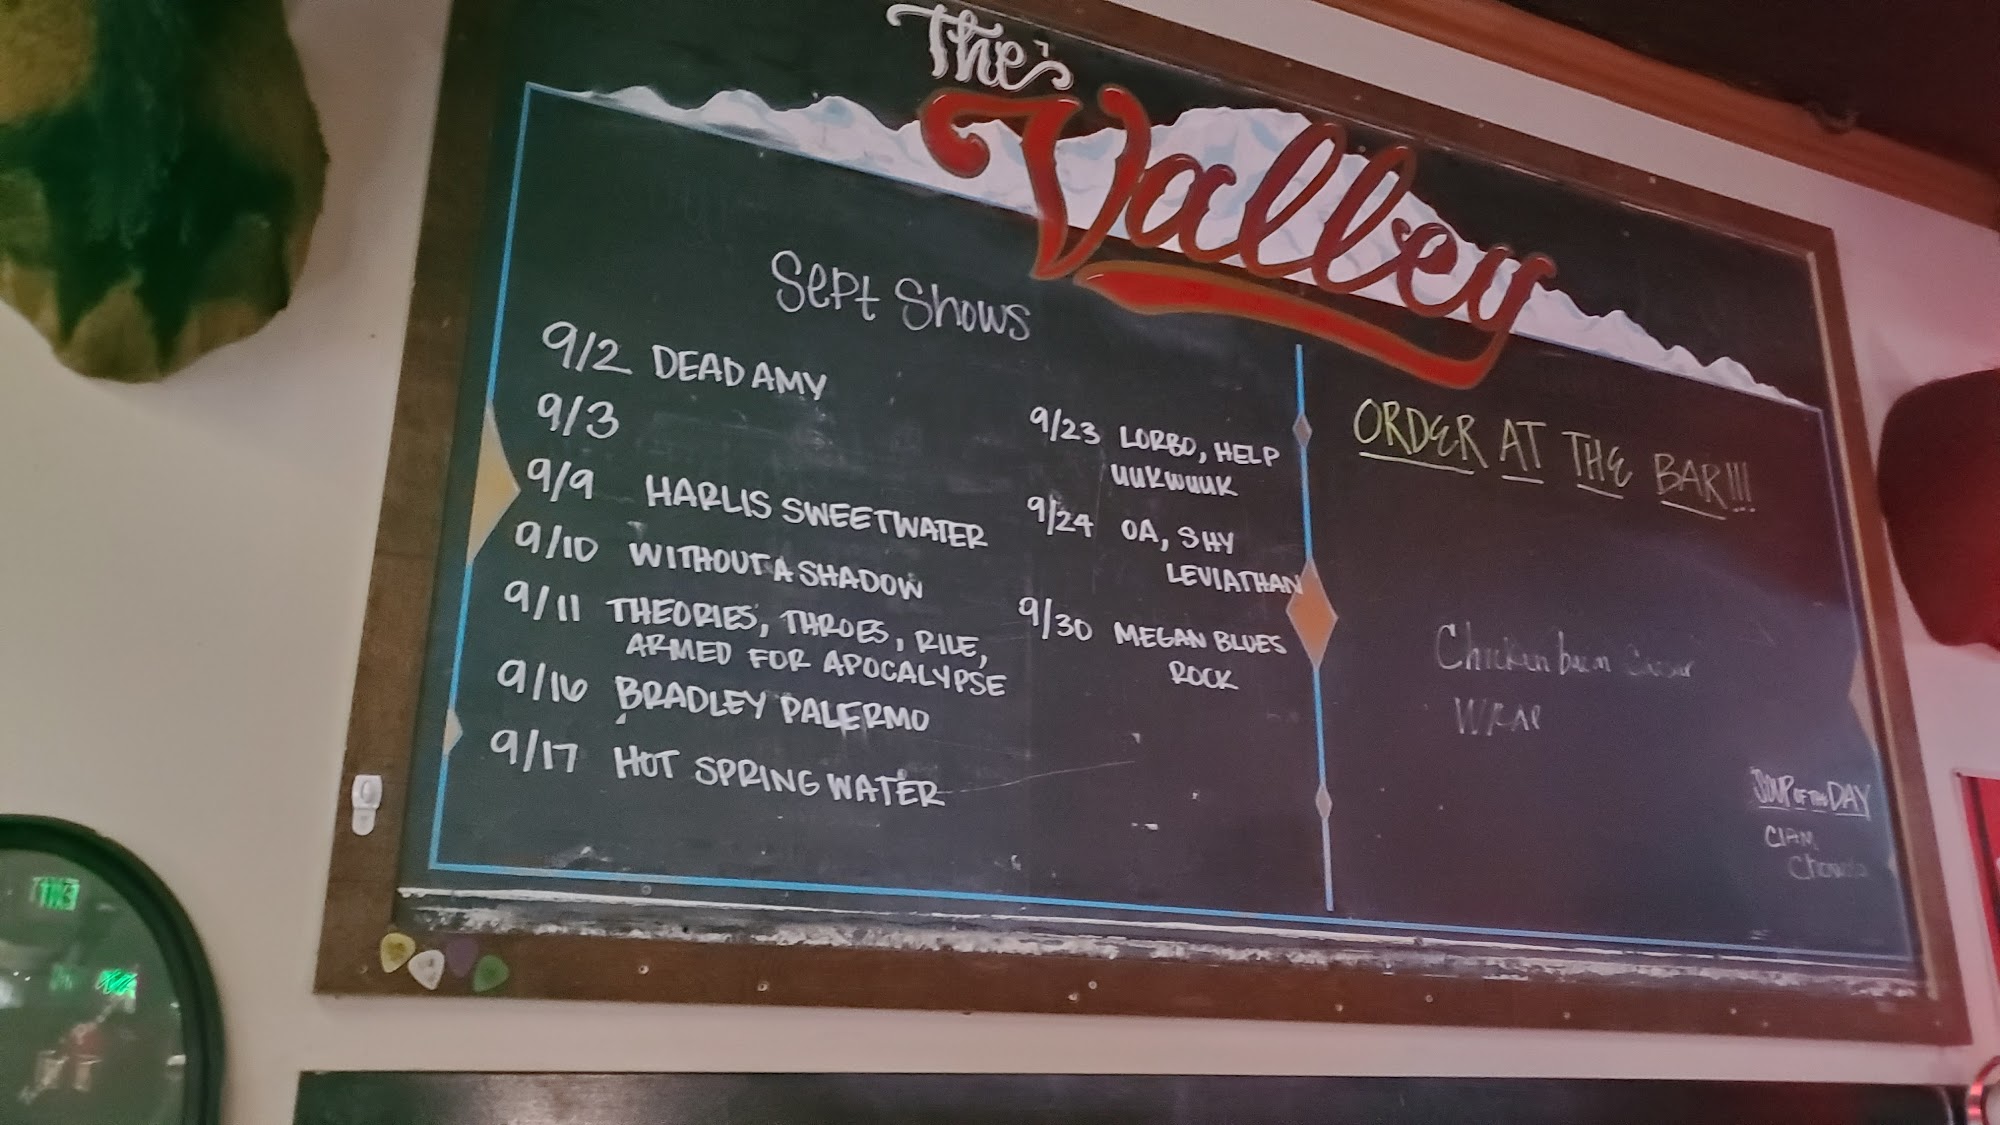 The
Valley
Sept Shows
9/2 DEAD AMY
9/3
9/9 HARLIS SWEETWATER
9/10 WITHOUT A SHADOW
9/11 THEORIES, THROES, RILE,
ARMED FOR APOCALYPSE
9/16 BRADLEY PALERMO
9/17 HOT SPRING WATER
9/23 LORBO, HELP
UUKWUUK
9/24 OA, SHY
LEVIATHAN
9/30 MEGAN BLUES
ROCK
ORDER AT THE BAR!!!
Chicken
WRAP
SOUP OF THE DAY
Clam
EXIT